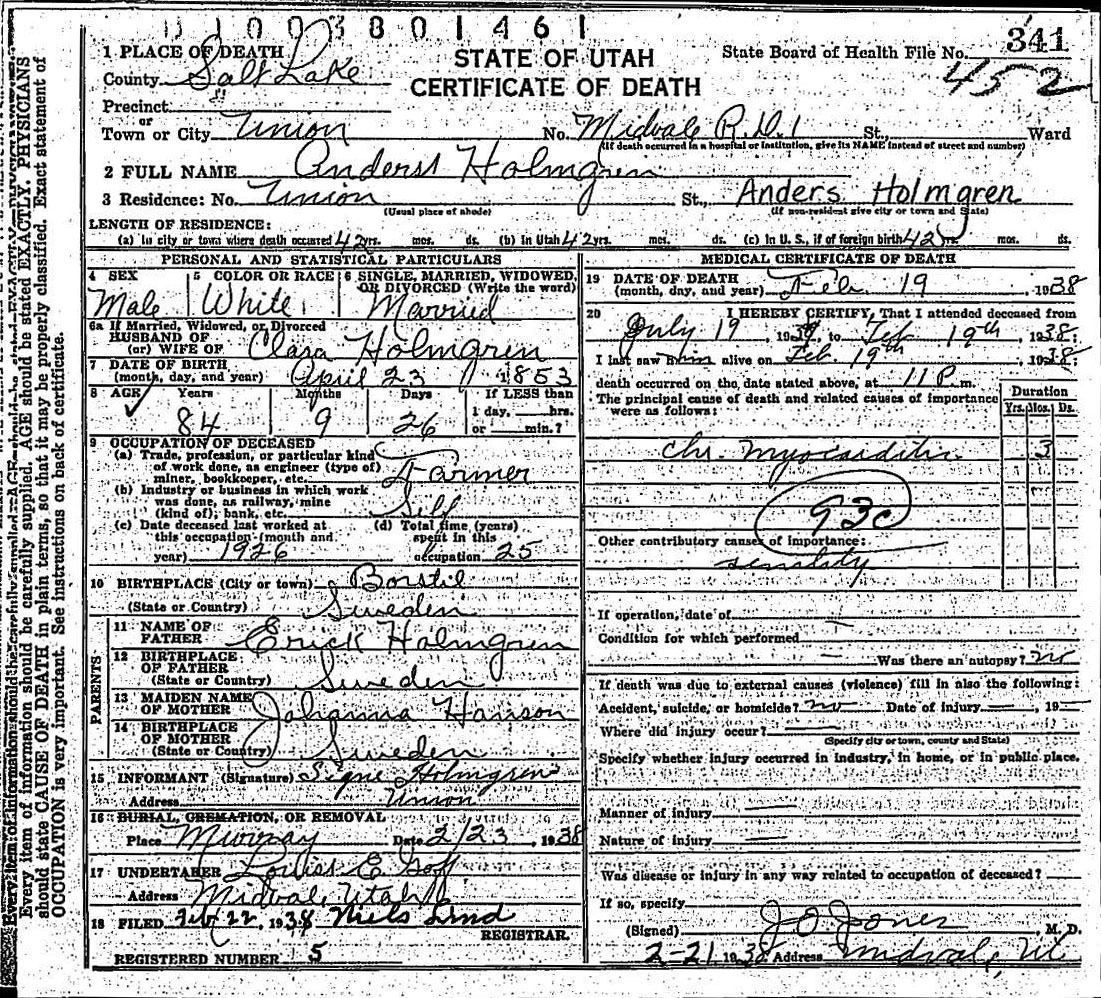 0100380 1461
1 PLACE OF DEATH
County Salt Lake
Precinct
or
Town or City Union No. Midvale R.D.1 St., Ward
(If death occurred in a hospital or institution, give its NAME instead of street and number)
STATE OF UTAH
CERTIFICATE OF DEATH
State Board of Health File No. 341
452
2 FULL NAME Anders Holmgren
3 Residence: No. Union St., Anders Holmgren
(Usual place of abode) (If non-resident give city or town and State)
LENGTH OF RESIDENCE:
(a) In city or town where death occurred 42 yrs. mos. ds. (b) In Utah 42 yrs. mos. ds. (c) In U. S., if of foreign birth 42 yrs. mos. ds.
PERSONAL AND STATISTICAL PARTICULARS
4 SEX 5 COLOR OR RACE 6 SINGLE, MARRIED, WIDOWED, OR DIVORCED (Write the word)
Male White Married
6a If Married, Widowed, or Divorced
HUSBAND OF
(or) WIFE OF Clara Holmgren
7 DATE OF BIRTH
(month, day, and year) April 23 1853
8 AGE Years Months Days If LESS than
1 day, hrs.
84 9 26 or min.?
9 OCCUPATION OF DECEASED
(a) Trade, profession, or particular kind
of work done, as engineer (type of)
miner, bookkeeper, etc. Farmer
(b) Industry or business in which work
was done, as railway, mine
(kind of); bank, etc. Self
(c) Date deceased last worked at
this occupation (month and
year) 1926
(d) Total time (years)
spent in this
occupation 25
10 BIRTHPLACE (City or town) Borstil
(State or Country) Sweden
PARENTS
11 NAME OF
FATHER Erick Holmgren
12 BIRTHPLACE
OF FATHER
(State or Country) Sweden
13 MAIDEN NAME
OF MOTHER Johanna Hanson
14 BIRTHPLACE
OF MOTHER
(State or Country) Sweden
15 INFORMANT (Signature) Signe Holmgren
Address Union
16 BURIAL, CREMATION, OR REMOVAL
Place Murray Date 2/23, 1938
17 UNDERTAKER Louise E Goff
Address Midval, Utah
18 FILED Feb 22, 1938 Niels Lind
REGISTRAR.
REGISTERED NUMBER 5
MEDICAL CERTIFICATE OF DEATH
19 DATE OF DEATH
(month, day, and year) Feb 19, 1938
20 I HEREBY CERTIFY, That I attended deceased from
July 19, 1937, to Feb 19th, 1938;
I last saw him alive on Feb 19th, 1938
death occurred on the date stated above, at 11 P m.
The principal cause of death and related causes of importance
were as follows:
Duration
Yrs. Mos. Ds.
Chr. Myocarditis 3
93c
Other contributory causes of importance:
senility
If operation, date of
Condition for which performed
Was there an autopsy? no
If death was due to external causes (violence) fill in also the following:
Accident, suicide, or homicide? no Date of injury , 19
Where did injury occur?
(Specify city or town, county and State)
Specify whether injury occurred in industry, in home, or in public place.
Manner of injury
Nature of injury
Was disease or injury in any way related to occupation of deceased?
If so, specify
(Signed) J O Jones, M. D.
2-21 1938 Address Midval, Ut
Every item of information should be carefully supplied. AGE should be stated EXACTLY. PHYSICIANS
should state CAUSE OF DEATH in plain terms, so that it may be properly classified. Exact statement of
OCCUPATION is very important. See instructions on back of certificate.